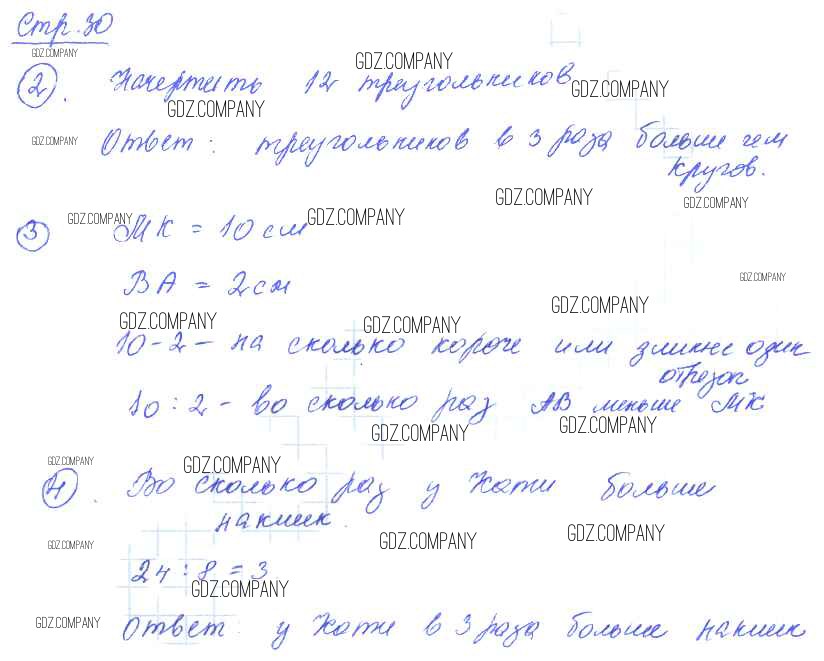 Стр. 30
GDZ.COMPANY
GDZ.COMPANY
2. Начертить 12 треугольников
GDZ.COMPANY
GDZ.COMPANY
GDZ.COMPANY
Ответ: треугольников в 3 раза больше чем
кругов.
GDZ.COMPANY
GDZ.COMPANY
GDZ.COMPANY
GDZ.COMPANY
3 МК = 10 см
ВА = 2 см
GDZ.COMPANY
GDZ.COMPANY
GDZ.COMPANY
GDZ.COMPANY
10-2 - на сколько короче или длинне один
отрезок
10 : 2 - во сколько раз АВ меньше МК
GDZ.COMPANY
GDZ.COMPANY
GDZ.COMPANY
GDZ.COMPANY
4. Во сколько раз у Кати больше
наклеек.
GDZ.COMPANY
GDZ.COMPANY
GDZ.COMPANY
24 : 8 = 3
GDZ.COMPANY
GDZ.COMPANY
Ответ: у Кати в 3 раза больше